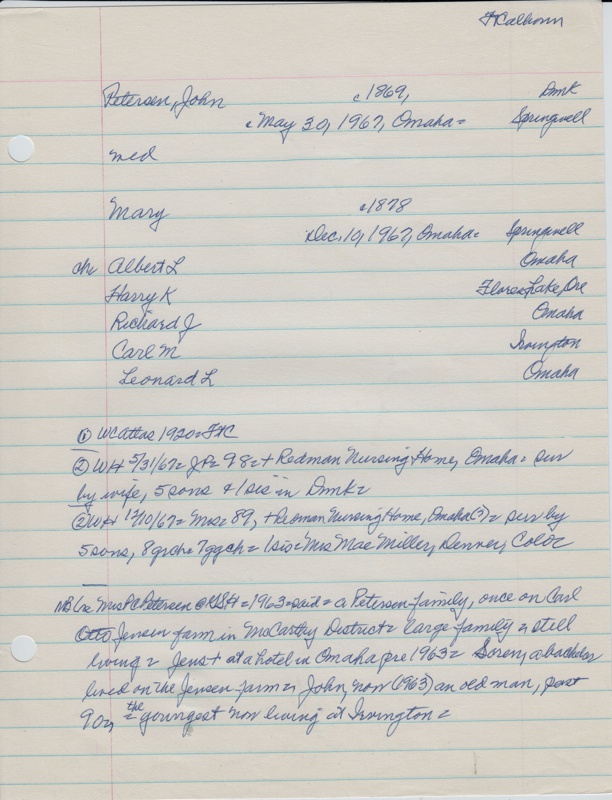 FtCalhoun
Petersen, John c1869, Dmk
c May 30, 1967, Omaha = Springwell
med
Mary c1878
Dec. 10, 1967, Omaha = Springwell
ch Albert L Omaha
Harry K Flores Lake, Ore
Richard J Omaha
Carl M Irvington
Leonard L Omaha
① WC Atlas 1920 = FtC
② WH 5/31/67 = JP = 98 = + Redman Nursing Home, Omaha = sur
by wife, 5 sons & 1 sis in Dmk =
② WH 12/10/67 = Mrs = 89, + Redman Nursing Home, Omaha(?) = sur by
5 sons, 8 grch = 7 ggch = 1 sis = Mrs Mae Miller, Denver, Colo =
NB Mrs PC Petersen @ = 1963 = said = a Petersen family, once on Carl
Otto Jensen farm in McCarthy District = large family = still
living = Jens + at a hotel in Omaha pre 1963 = Soren, a bachelor
lived on the Jensen farm = John, now (1963) an old man, past
90, = the youngest now living at Irvington =